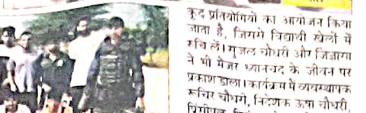 कूद प्रतियोगियों का आयोजन किया
जाता है, जिससे विद्यार्थी खेलों में
रुचि लें। सुजल चौधरी और जिज्ञासा
ने भी मेजर ध्यानचंद के जीवन पर
प्रकाश डाला। कार्यक्रम में व्यवस्थापक
रूचिर चौधरी, निदेशक ऊषा चौधरी,